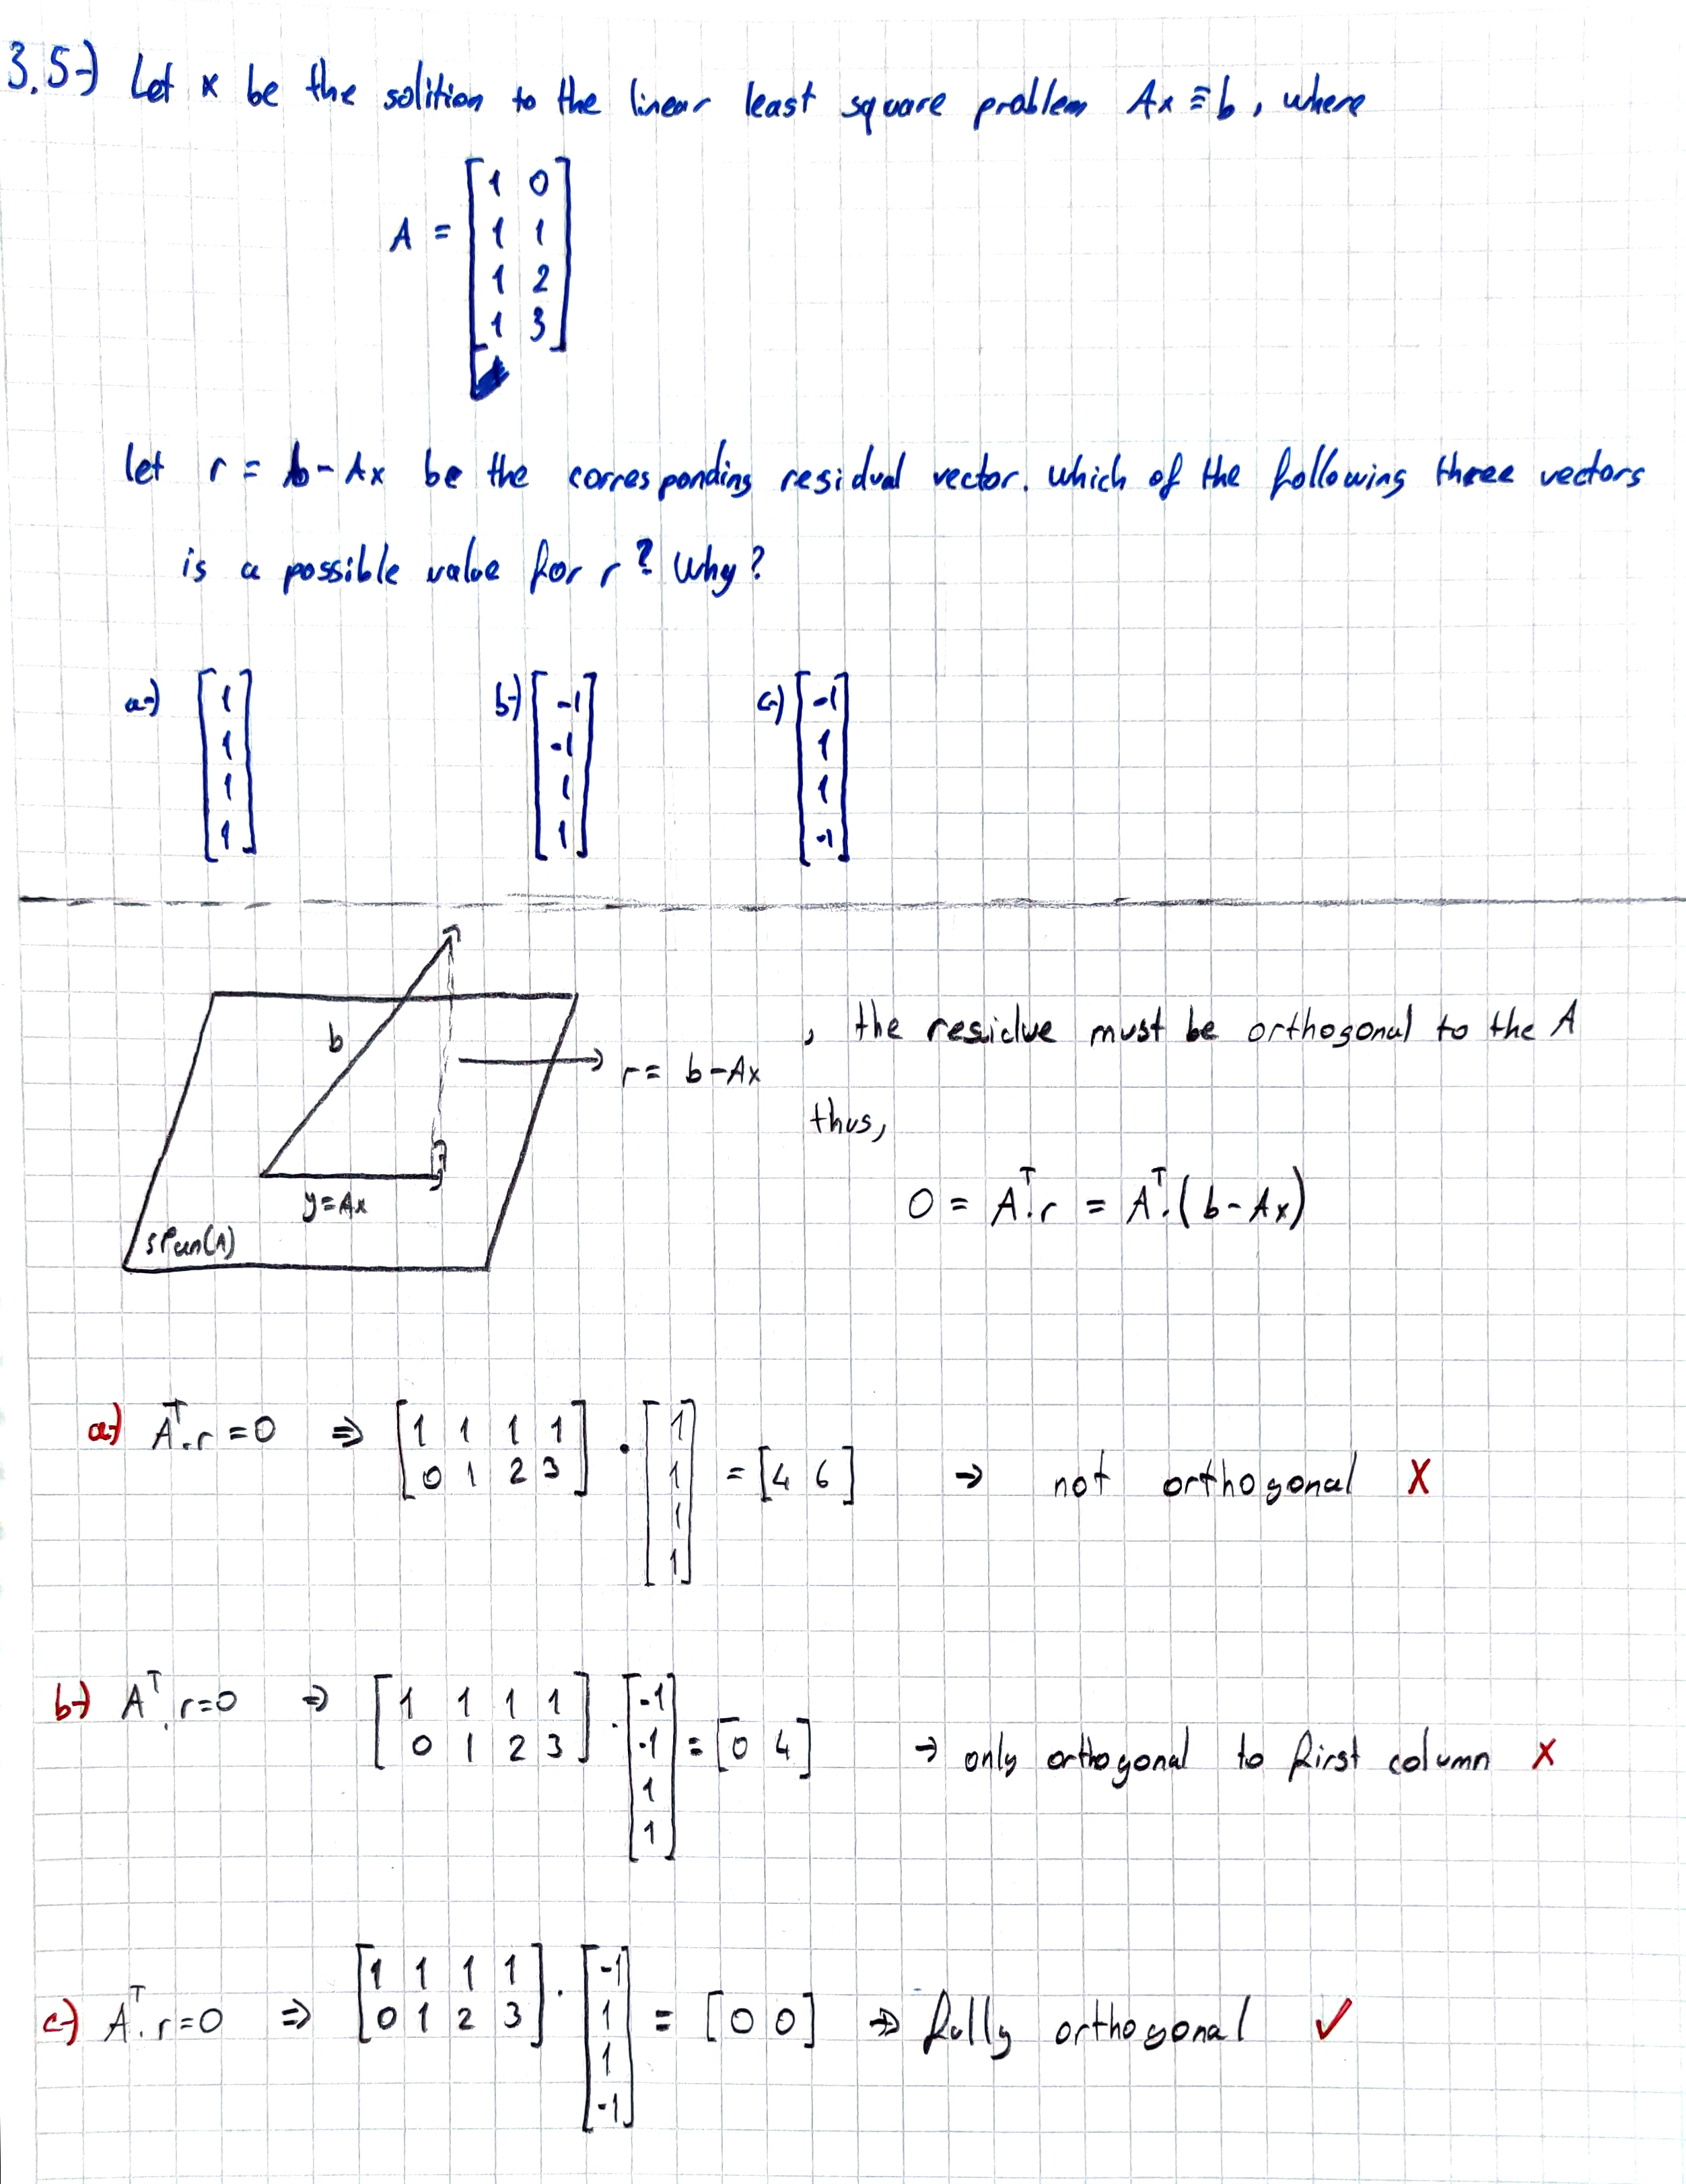 3.5-) Let x be the solition to the linear least square problem Ax ≅ b, where
A = [1 0
1 1
1 2
1 3]
let r = b - Ax be the corresponding residual vector. which of the following three vectors
is a possible value for r? Why?
a-) [1 1 1 1] b-) [-1 -1 1 1] c-) [-1 1 1 -1]
b
r = b - Ax
y = Ax
span(A)
, the residue must be orthogonal to the A
thus,
0 = Aᵀ.r = Aᵀ.(b - Ax)
a-) Aᵀ.r = 0 ⇒ [1 1 1 1
0 1 2 3] . [1 1 1 1] = [4 6] → not orthogonal X
b-) Aᵀ.r = 0 ⇒ [1 1 1 1
0 1 2 3] . [-1 -1 1 1] = [0 4] → only orthogonal to first column X
c-) Aᵀ.r = 0 ⇒ [1 1 1 1
0 1 2 3] . [-1 1 1 -1] = [0 0] ⇒ fully orthogonal ✓